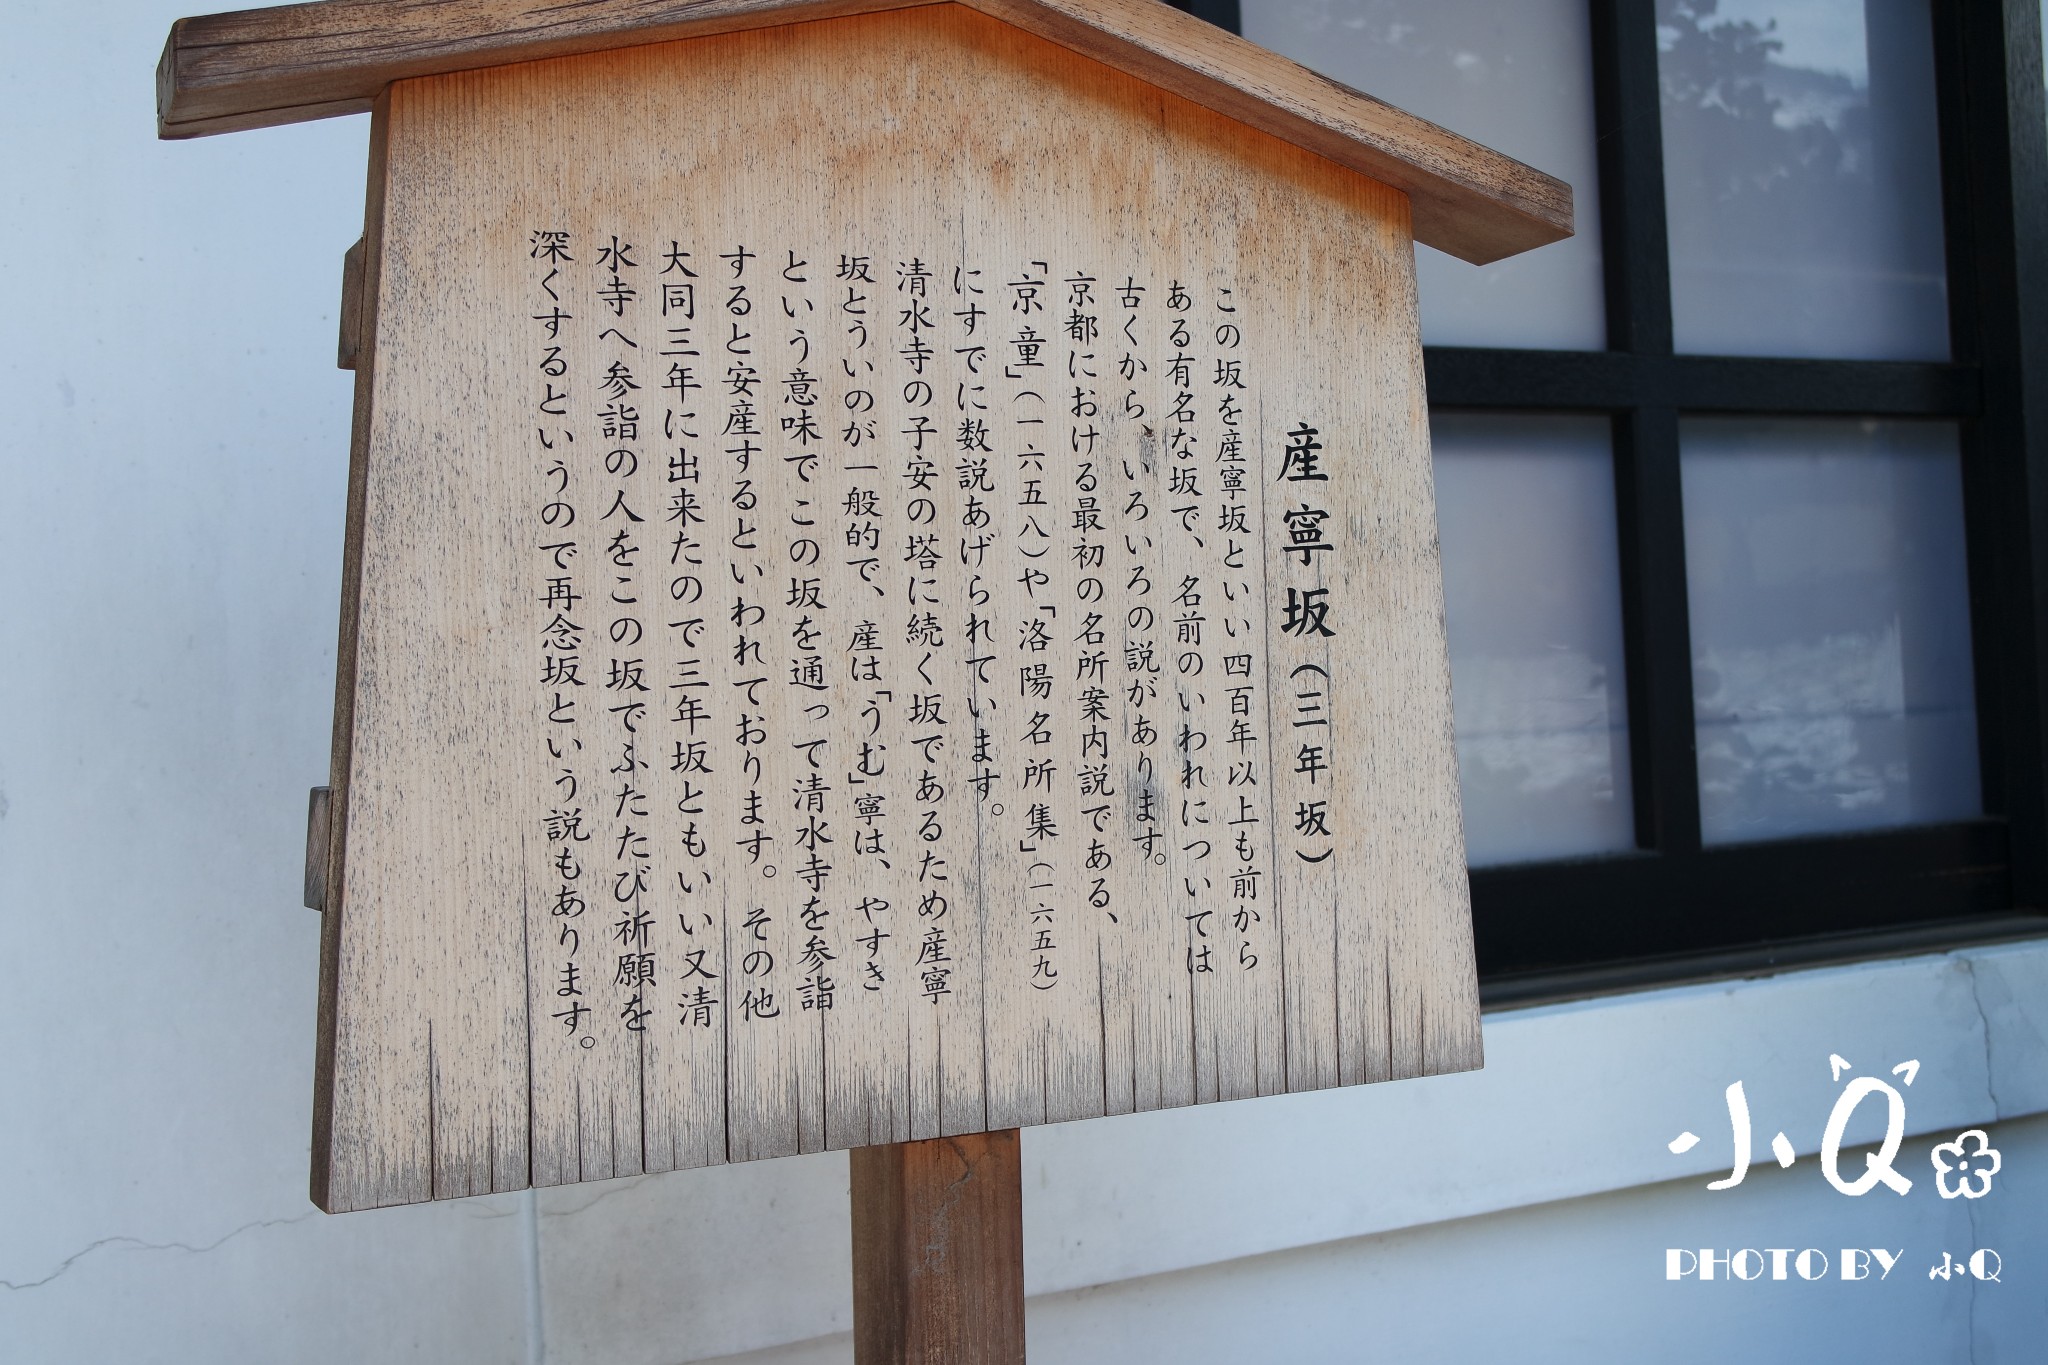 産寧坂(三年坂)
この坂を産寧坂といい四百年以上も前から
ある有名な坂で、名前のいわれについては
古くから、いろいろの説があります。
京都における最初の名所案内説である、
「京童」(一六五八)や「洛陽名所集」(一六五九)
にすでに数説あげられています。
清水寺の子安の塔に続く坂であるため産寧
坂とういのが一般的で、産は「うむ」寧は、やすき
という意味でこの坂を通って清水寺を参詣
すると安産するといわれております。その他
大同三年に出来たので三年坂ともいい又清
水寺へ参詣の人をこの坂でふたたび祈願を
深くするというので再念坂という説もあります。
小Q
PHOTO BY 小Q